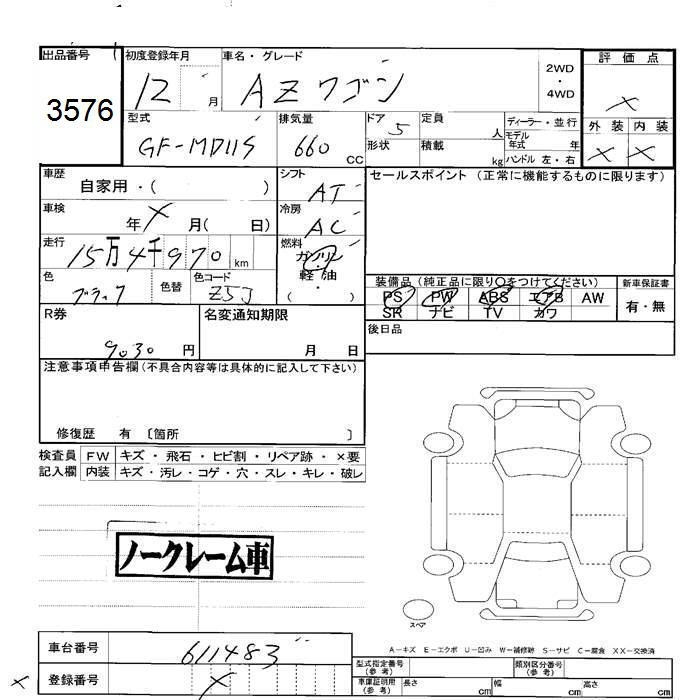 出品番号 初度登録年月 車名・グレード 評価点
3576 12 月 AZワゴン 2WD ・ 4WD ×
型式 排気量 ドア 定員 ディーラー・並行 外装 内装
GF-MD11S 660 CC 5 人 モデル年式 年 × ×
形状 積載 kg ハンドル 左・右
車歴 シフト セールスポイント (正常に機能するものに限ります)
自家用・( ) AT
車検 冷房
年 × 月( 日) AC
走行 燃料
15万4千970 km ガソリン
色 色替 色コード 軽油
ブラック Z5J ( ・ )
装備品(純正品に限り○をつけてください) 新車保証書
PS PW ABS エアB AW 有・無
SR ナビ TV カワ
R券 名変通知期限 後日品
9030 円 月 日
注意事項申告欄(不具合内容等は具体的に記入して下さい)
修復歴 有 〔箇所 〕
検査員 FW キズ・飛石・ヒビ割・リペア跡・×要
記入欄 内装 キズ・汚レ・コゲ・穴・スレ・キレ・破レ
ノークレーム車
スペア
A-キズ E-エクボ U-凹み W-補修跡 S-サビ C-腐食 XX-交換済
車台番号 611483
型式指定番号(参考) 類別区分番号(参考)
× 登録番号 ×
車庫証明用(参考) 長さ cm 幅 cm 高さ cm